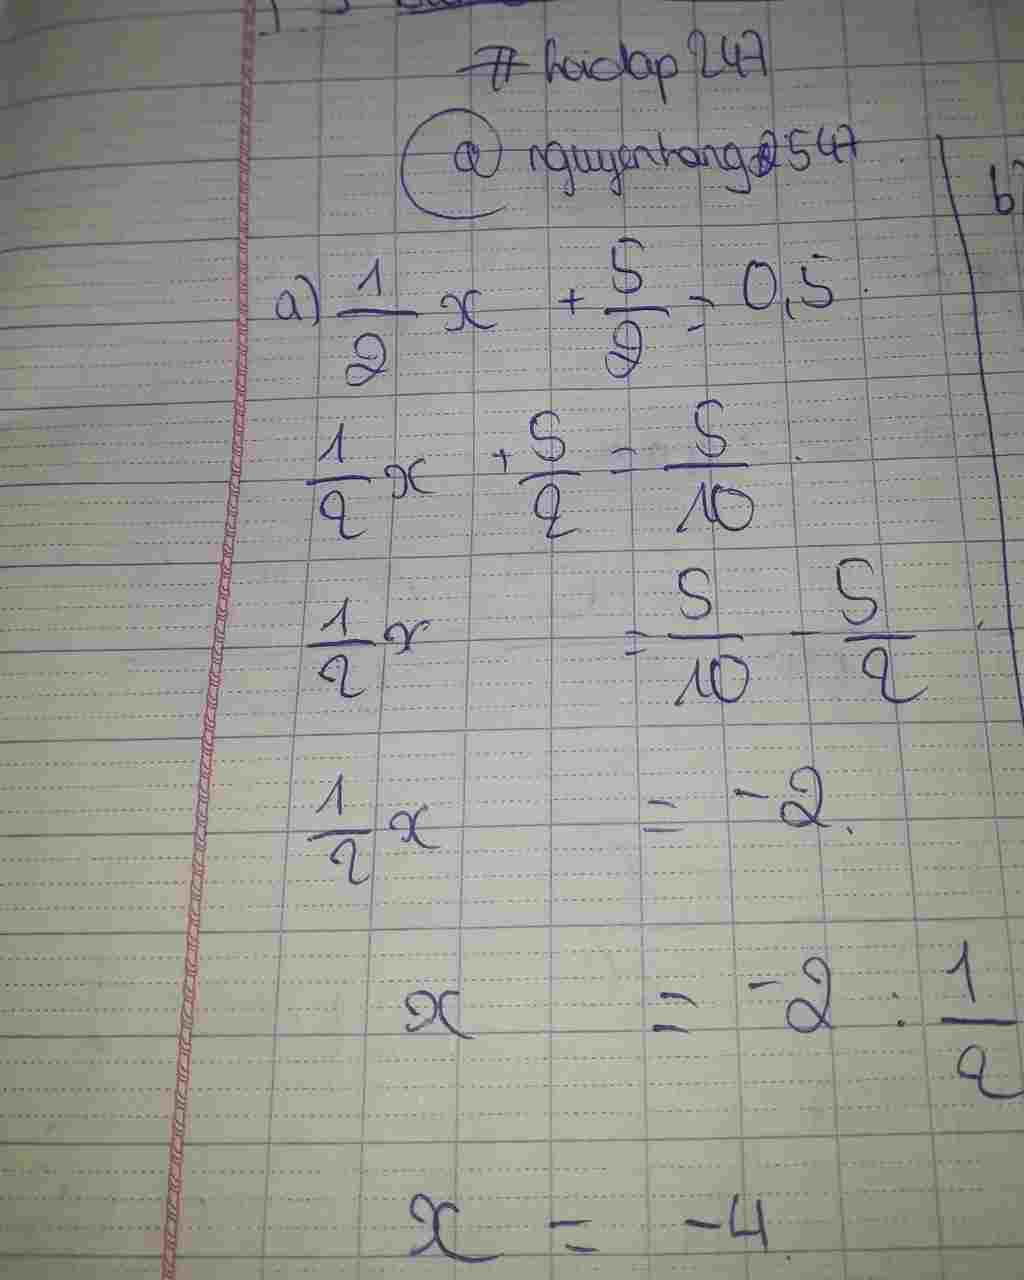 # hoidap 247
@ nguyenhang2547
b)
a) 1/2 x + 5/2 = 0,5
1/2 x + 5/2 = 5/10
1/2 x = 5/10 - 5/2
1/2 x = -2.
x = -2 : 1/2
x = -4